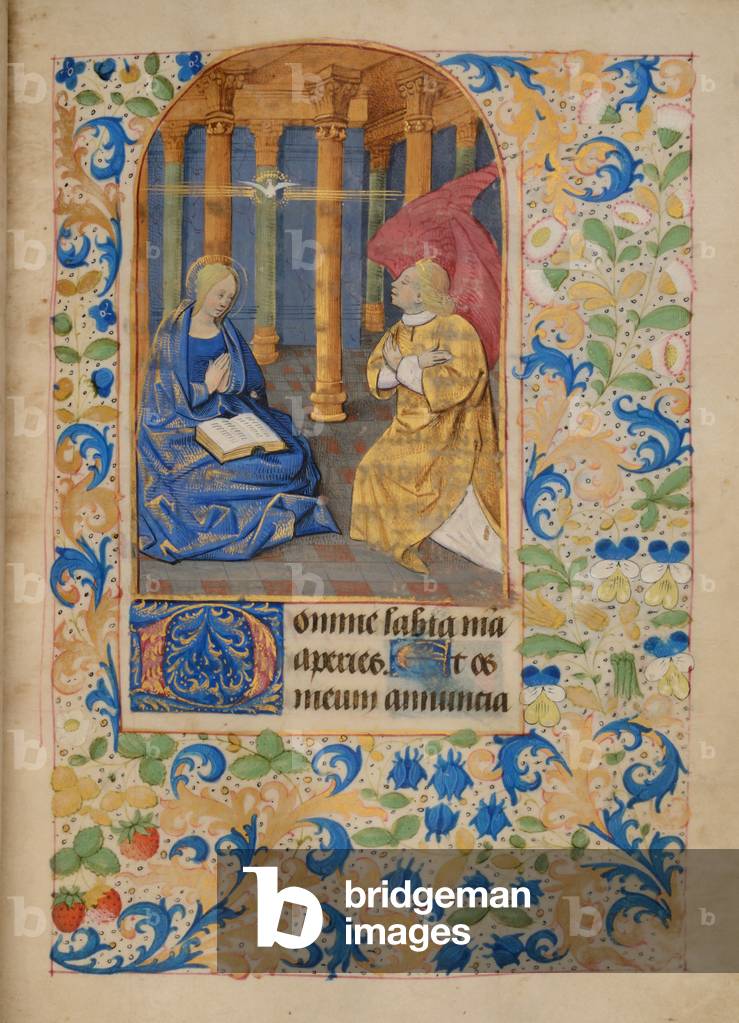 Domine labia mea
aperies. Et os
meum annuncia
bridgeman
images